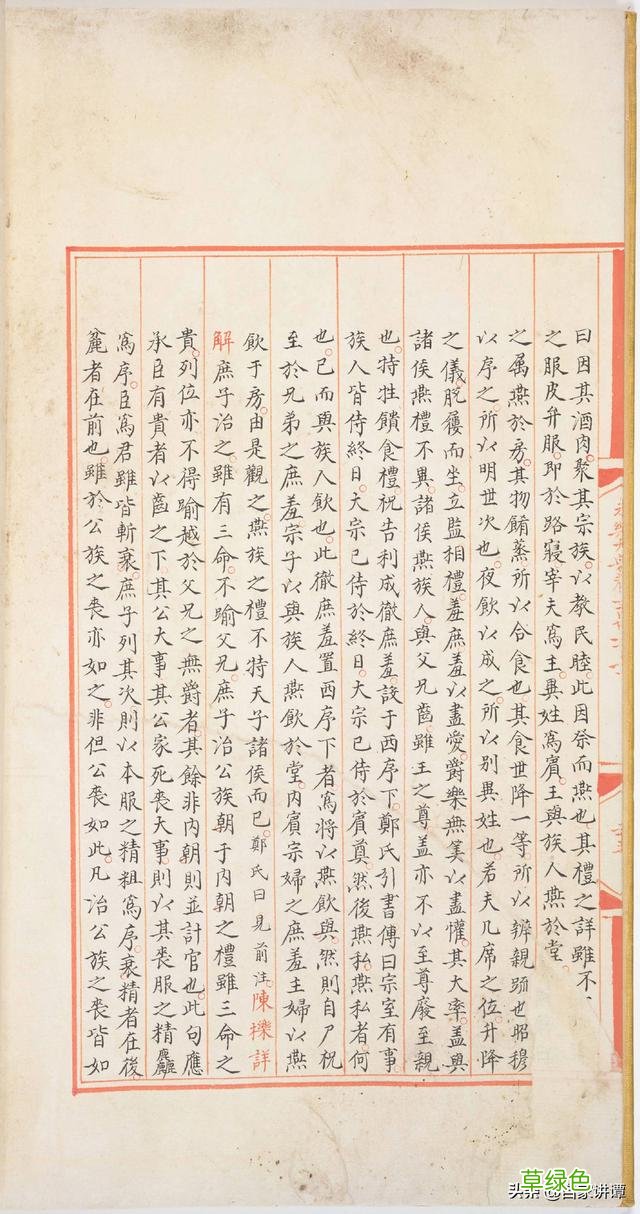 曰因其酒肉聚其宗族以教民睦此因祭而燕也其禮之詳雖不
之服皮弁服即於路寢宰夫爲主異姓爲賓王與族人燕於堂
之属燕於房其物餚蒸所以合食也其食世降一等所以辨親踈也昭穆
以序之所以明世次也夜飲以成之所以别異姓也若夫几席之位升降
之儀脱屨而坐立監相禮羞庶羞以盡愛爵樂無筭以盡懽其大率盖與
諸侯燕禮不異諸侯燕族人與父兄齒雖王之尊盖亦不以至尊廢至親
也特牲饋食禮祝告利成徹庶羞設于西序下鄭氏引書傳曰宗室有事
族人皆侍終日大宗已侍於終日大宗已侍於賓奠然後燕私燕私者何
也已而與族人飲也此徹庶羞置西序下者爲將以燕飲與然則自尸祝
至於兄弟之庶羞宗子以與族人燕飲於堂内賓宗婦之庶羞主婦以燕
飲于房由是觀之燕族之禮不特天子諸侯而已鄭氏曰見前注陳櫟詳
解庶子治之雖有三命不踰父兄庶子治公族朝于内朝之禮雖三命之
貴列位亦不得踰越於父兄之無爵者其餘非内朝則並計官也此句應
承臣有貴者以齒之下其公大事其公家死喪大事則以其喪服之精麤
爲序臣爲君雖皆斬衰庶子列其次則以本服之精粗爲序衰精者在後
麄者在前也雖於公族之喪亦如之非但公喪如此凡治公族之喪皆如
草绿色
头条 @百家讲谭